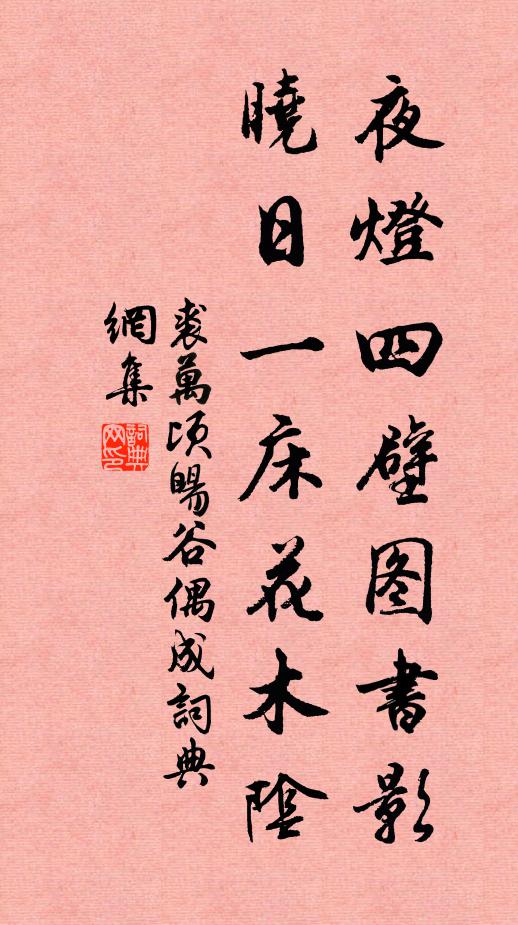 夜燈四壁图書影
曉日一床花木陰
裘萬頃暘谷偶成詞典
網集
詞典網印